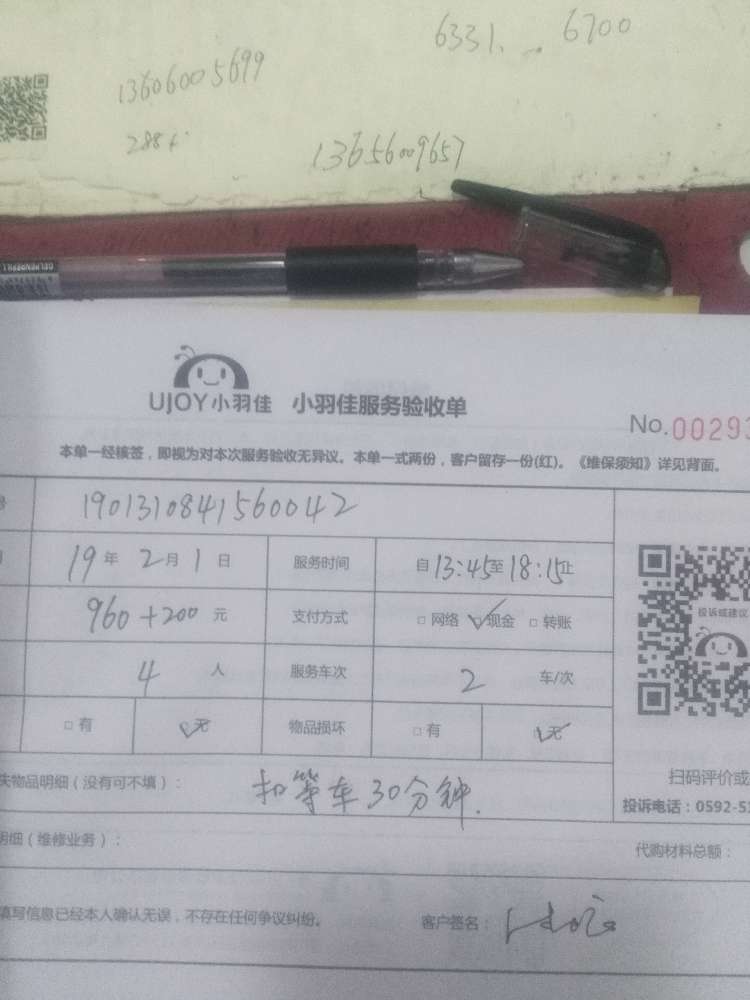 6331. .. 6700
13606005699
288+
13656009657
UJOY小羽佳 小羽佳服务验收单
No.00293
本单一经核签，即视为对本次服务验收无异议。本单一式两份，客户留存一份(红)。《维保须知》详见背面。
号 1901310841560042
19年2月1日 服务时间 自13:45至18:15止
960+200元 支付方式 □网络 ☑现金 □转账
投诉或建议
4人 服务车次 2车/次
□有 ☑无 物品损坏 □有 ☑无
失物品明细（没有可不填）： 扣等车30分钟.
扫码评价或
投诉电话：0592-51
明细（维修业务）：
代购材料总额：
填写信息已经本人确认无误，不存在任何争议纠纷。 客户签名：